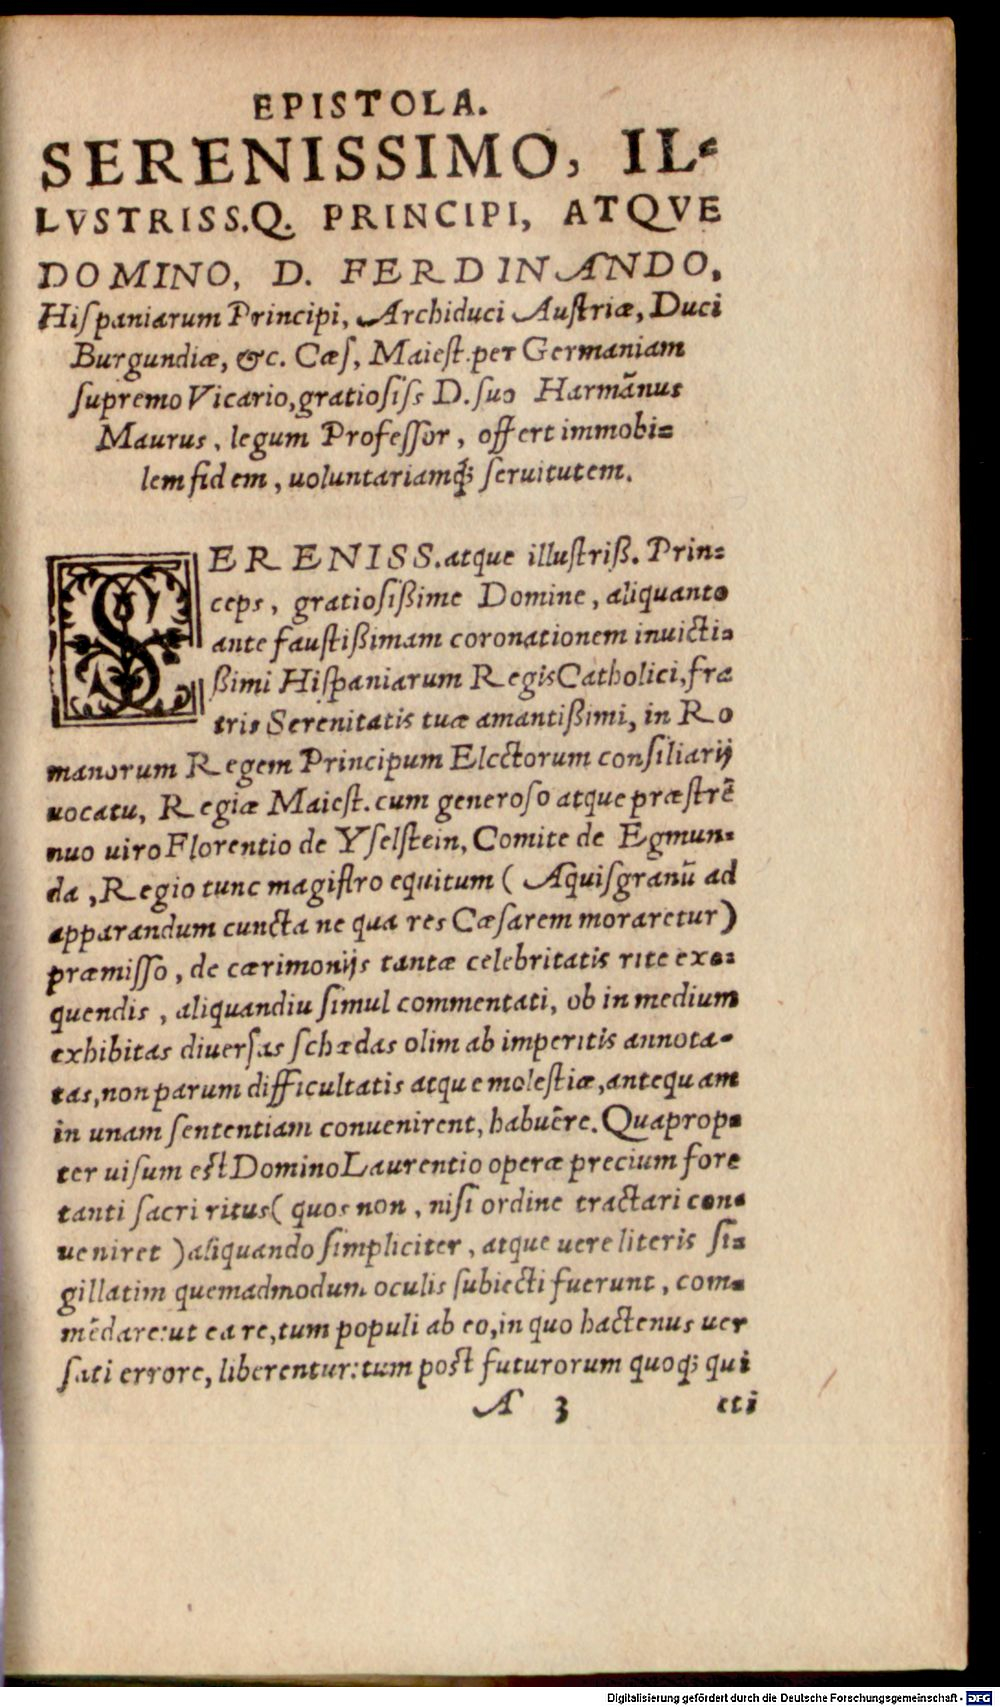 EPISTOLA.
SERENISSIMO, IL-
LVSTRISS.Q. PRINCIPI, ATQVE
DOMINO, D. FERDINANDO,
Hiſpaniarum Principi, Archiduci Auſtriæ, Duci
Burgundiæ, &c. Cæſ, Maieſt. per Germaniam
ſupremo Vicario, gratioſiſs D. ſuo Harmãnus
Maurus, legum Profeſſor, offert immobi-
lem fidem, uoluntariamq́; ſeruitutem.
SERENISS. atque illuſtriß. Prin-
ceps, gratioſißime Domine, aliquanto
ante fauſtißimam coronationem inuicti-
ßimi Hiſpaniarum Regis Catholici, fra
tris Serenitatis tuæ amantißimi, in Ro
manorum Regem Principum Elcctorum conſiliarij
uocatu, Regiæ Maieſt. cum generoſo atque præſtrẽ
nuo uiro Florentio de Yſelſtein, Comite de Egmun-
da, Regio tunc magiſtro equitum ( Aquiſgranũ ad
apparandum cuncta ne qua res Cæſarem moraretur)
præmiſſo, de cærimonijs tantæ celebritatis rite exe-
quendis, aliquandiu ſimul commentati, ob in medium
exhibitas diuerſas ſchædas olim ab imperitis annota-
tas, non parum difficultatis atque moleſtiæ, antequam
in unam ſententiam conuenirent, habuêre. Quaprop-
ter uiſum eſt Domino Laurentio operæ precium fore
tanti ſacri ritus( quos non, niſi ordine tractari con-
ueniret )aliquando ſimpliciter, atque uere literis ſi-
gillatim quemadmodum oculis ſubiecti fuerunt, com-
mẽdare:ut ea re, tum populi ab eo, in quo hactenus uer
ſati errore, liberentur: tum poſt futurorum quoq; qui
A 3 eti
Digitalisierung gefördert durch die Deutsche Forschungsgemeinschaft - DFG